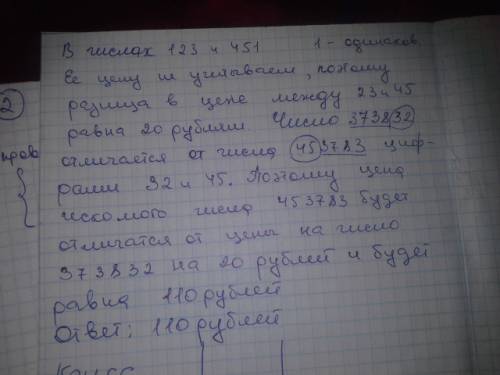 В числах 123 и 451 1 - одинаков.
Ее цену не учитываем, поэтому
разница в цене между 23 и 45
равна 20 рублям. Число 373832
отличается от числа 453783 циф-
рами 32 и 45. Поэтому цена
искомого числа 453783 будет
отличатся от цены на число
373832 на 20 рублей и будет
равна 110 рублей
Ответ: 110 рублей
2